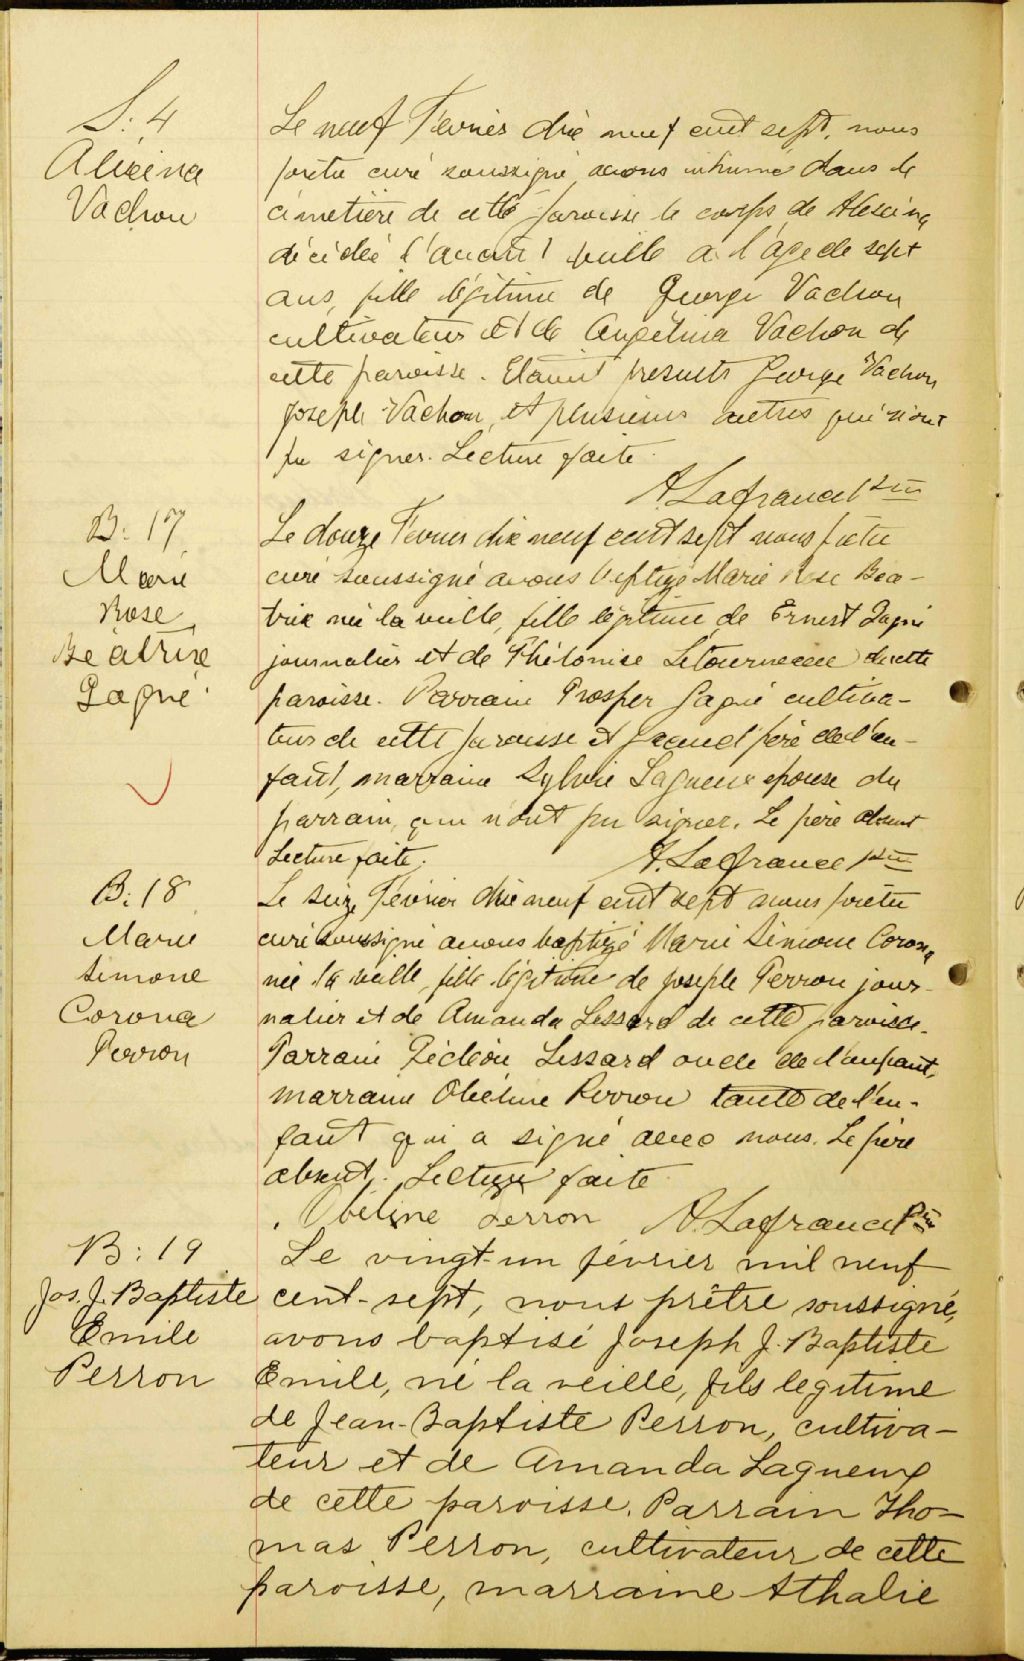 S: 4
Alexina
Vachon
Le neuf Février dix neuf cent sept, nous
prêtre curé soussigné avons inhumé dans le
cimetière de cette paroisse le corps de Alexina
décédée l'avant veille à l'âge de sept
ans, fille légitime de George Vachon
cultivateur et de Angélina Vachon de
cette paroisse. Etaient présents George Vachon
Joseph Vachon, et plusieurs autres qui n'ont
pu signer. Lecture faite.
A. Lafrance ptre
B: 17
Marie
Rose
Béatrixe
Gagné
Le douze Février dix neuf cent sept nous prêtre
curé soussigné avons baptizé Marie Rose Béa-
trix née la veille, fille légitime de Ernest Gagné
journalier et de Philonise Létourneau de cette
paroisse. Parrain Prosper Gagné cultiva-
teur de cette paroisse et grand père de l'en-
fant, marraine Sylvie Lagueux épouse du
parrain, qui n'ont pu signer. Le père absent
Lecture faite.
A. Lafrance ptre
B: 18
Marie
Simone
Corona
Perron
Le seize Février dix neuf cent sept nous prêtre
curé soussigné avons baptizé Marie Simone Corona
née la veille, fille légitime de Joseph Perron jour-
nalier et de Amanda Lessard de cette paroisse.
Parrain Lessard oncle de l'enfant,
marraine Obéline Perron tante de l'en-
fant qui a signé avec nous. Le père
absent. Lecture faite
Obéline Perron A. Lafrance Ptre
B: 19
Jos. J. Baptiste
Emile
Perron
Le vingt-un février mil neuf
cent-sept, nous prêtre soussigné,
avons baptisé Joseph J. Baptiste
Emile, né la veille, fils legitime
de Jean-Baptiste Perron, cultiva-
teur et de Amanda Lagueux
de cette paroisse. Parrain Tho-
mas Perron, cultivateur de cette
paroisse, marraine Athalie